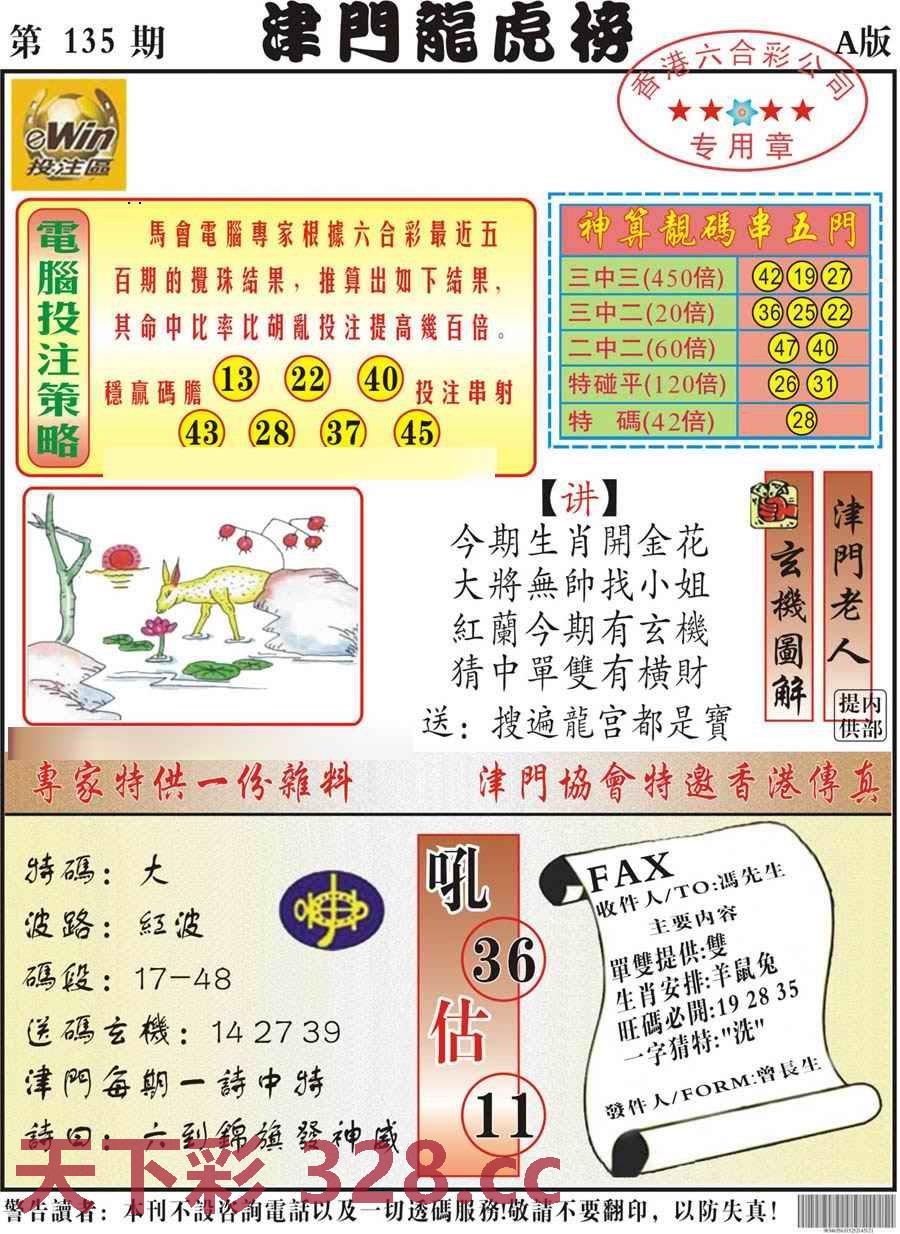 第 135 期
津門龍虎榜
A版
香港六合彩公司
专用章
eWin
投注區
電腦投注策略
馬會電腦專家根據六合彩最近五
百期的攪珠結果，推算出如下結果，
其命中比率比胡亂投注提高幾百倍。
穩贏碼膽 13 22 40 投注串射
43 28 37 45
神算靚碼串五門
三中三(450倍) 42 19 27
三中二(20倍) 36 25 22
二中二(60倍) 47 40
特碰平(120倍) 26 31
特 碼(42倍) 28
【讲】
今期生肖開金花
大將無帥找小姐
紅蘭今期有玄機
猜中單雙有橫財
送：搜遍龍宫都是寶
玄機圖解
津門老人
内部提供
專家特供一份雜料
津門協會特邀香港傳真
特碼：大
波路：紅波
碼段：17-48
送碼玄機：14 27 39
津門每期一詩中特
詩曰：六到錦旗發神威
吼
36
估
11
FAX
收件人/TO:馮先生
主要内容
單雙提供:雙
生肖安排:羊鼠兔
旺碼必開:19 28 35
一字猜特:"洗"
發件人/FORM:曾長生
天下彩 328.cc
警告讀者：本刊不設咨詢電話以及一切透碼服務!敬請不要翻印，以防失真!